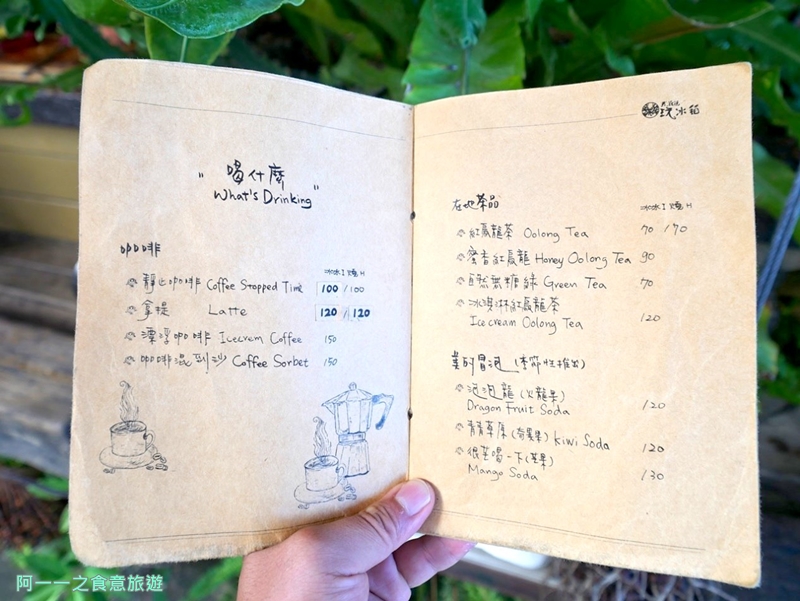 "喝什麼"
What's Drinking
咖啡
冰I 燒H
靜止咖啡 Coffee Stopped Time 100 / 100
拿提 Latte 120 / 120
漂浮咖啡 Icecrem Coffee 150
咖啡混到沙 Coffee Sorbet 150
玩冰箱
在地茶品
冰I 燒H
紅烏龍茶 Oolong Tea 70 / 70
蜜香紅烏龍 Honey Oolong Tea 90
自然無糖綠 Green Tea 70
冰淇淋紅烏龍茶
Ice cream Oolong Tea 120
美的冒泡 (季節性推出)
泡泡龍 (火龍果)
Dragon Fruit Soda 120
青青草原 (奇異果) kiwi Soda 120
很芒喝一下 (芒果)
Mango Soda 130
阿一一之食意旅遊